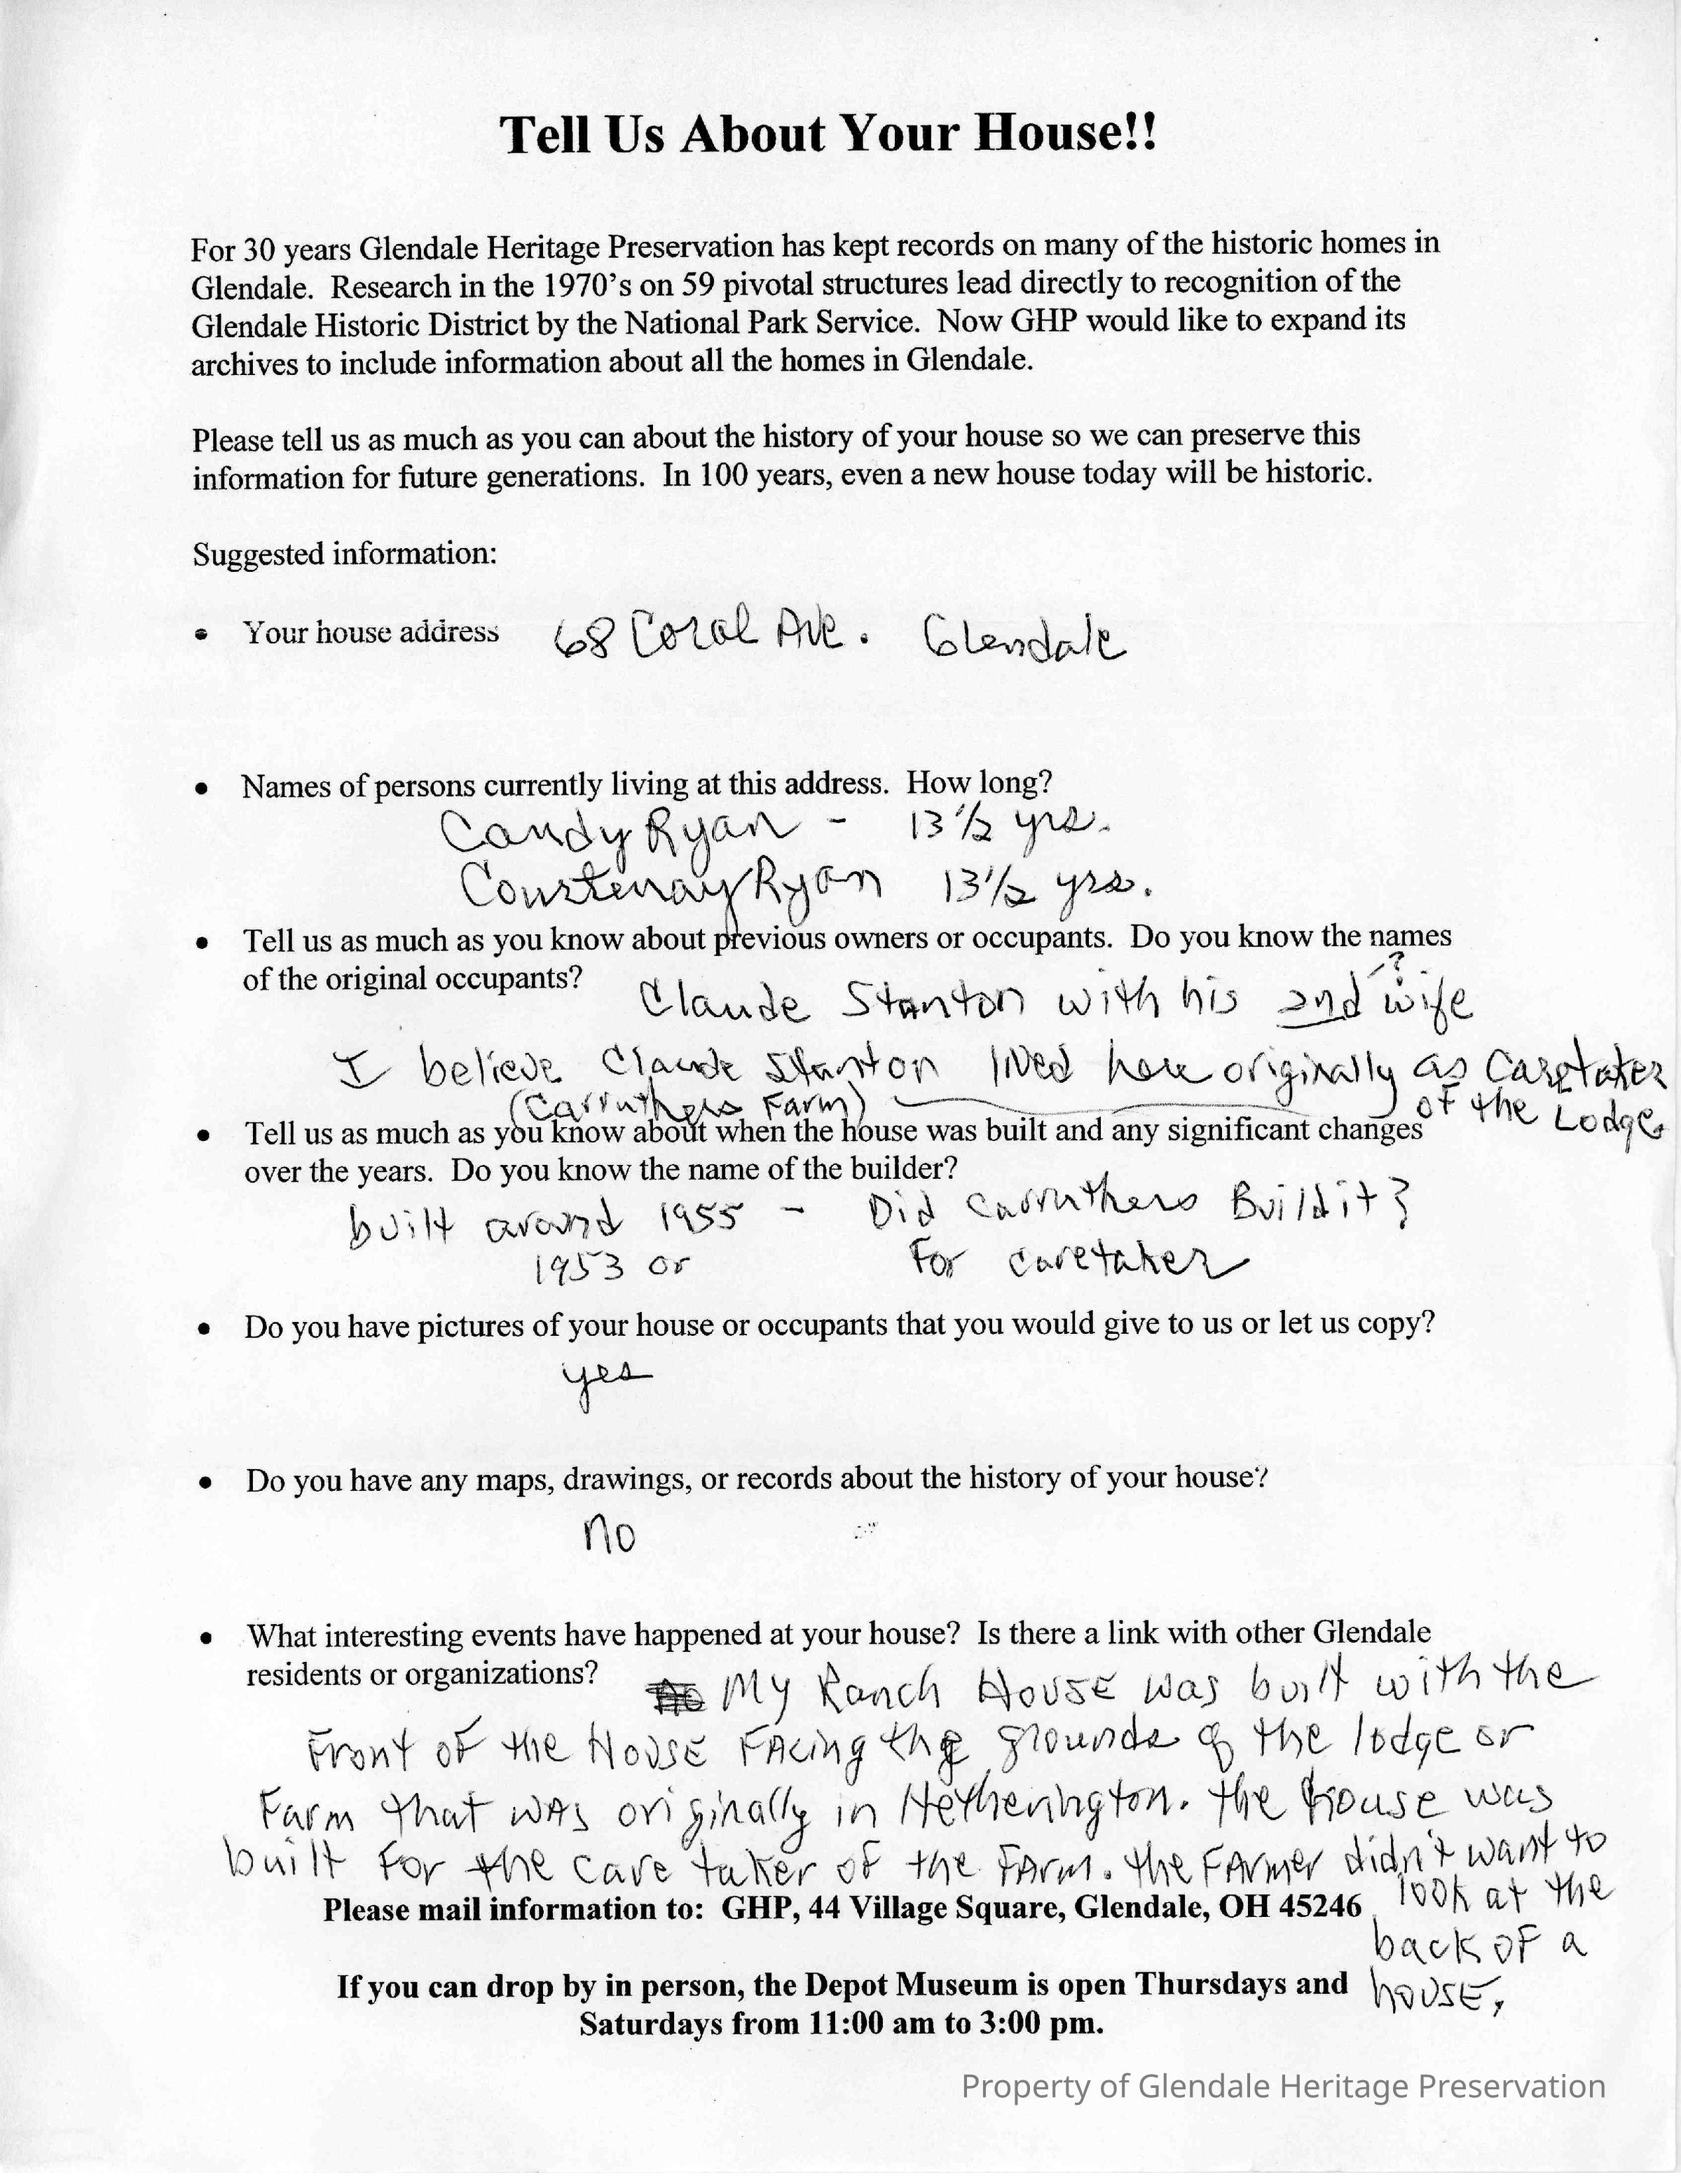 Tell Us About Your House!!
For 30 years Glendale Heritage Preservation has kept records on many of the historic homes in
Glendale. Research in the 1970's on 59 pivotal structures lead directly to recognition of the
Glendale Historic District by the National Park Service. Now GHP would like to expand its
archives to include information about all the homes in Glendale.
Please tell us as much as you can about the history of your house so we can preserve this
information for future generations. In 100 years, even a new house today will be historic.
Suggested information:
• Your house address 68 Coral Ave. Glendale
• Names of persons currently living at this address. How long?
Candy Ryan - 13 1/2 yrs.
Courtenay Ryan 13 1/2 yrs.
• Tell us as much as you know about previous owners or occupants. Do you know the names
of the original occupants? Claude Stanton with his 2nd ? wife
I believe Claude Stanton lived here originally as Caretaker
(Carruthers Farm) of the Lodge
• Tell us as much as you know about when the house was built and any significant changes
over the years. Do you know the name of the builder?
built around 1955 - Did Carruthers Build it?
1953 or For caretaker
• Do you have pictures of your house or occupants that you would give to us or let us copy?
yes
• Do you have any maps, drawings, or records about the history of your house?
no
• What interesting events have happened at your house? Is there a link with other Glendale
residents or organizations? My Ranch House was built with the
Front of the House Facing the grounds of the lodge or
Farm that was originally in Hetherington. the house was
built for the care taker of the Farm. the Farmer didn't want to
look at the
back of a
house.
Please mail information to: GHP, 44 Village Square, Glendale, OH 45246
If you can drop by in person, the Depot Museum is open Thursdays and
Saturdays from 11:00 am to 3:00 pm.
Property of Glendale Heritage Preservation